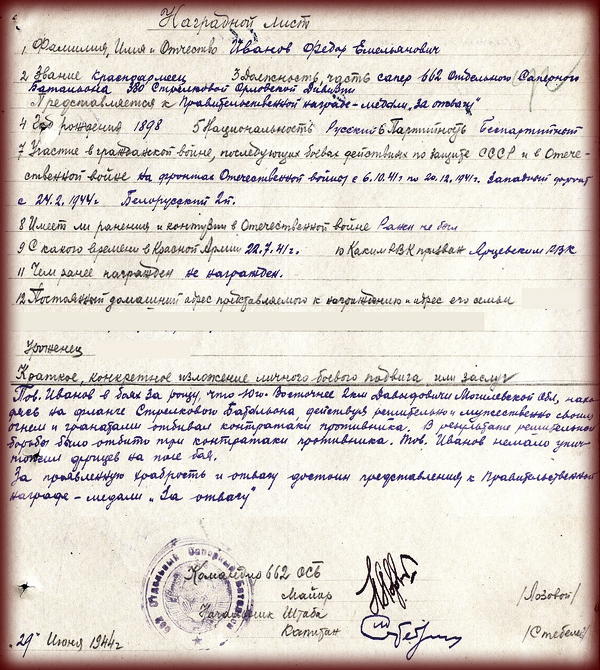 Наградной лист
1 Фамилия, Имя и Отчество Иванов Федор Емельянович
2 Звание Красноармеец 3 Должность, часть сапер 662 Отдельного Саперного
Баталиона 380 Стрелковой Орловской Дивизии
Представляется к Правительственной награде – медали „За отвагу"
4 Год рождения 1898 5 Национальность Русский 6 Партийность Беспартийный
7 Участие в гражданской войне, последующих боевых действиях по защите СССР и в Отече-
ственной войне на фронтах Отечественной войны с 6.10.41г по 20.12.1941г. Западный фронт
с 24.2.1944г Белорусский 2й.
8 Имеет ли ранения и контузии в Отечественной войне Ранен не был
9 С какого времени в Красной Армии 22.7.41г. 10 Каким РВК призван Ярцевским РВК
11 Чем ранее награжден не награжден.
12 Постоянный домашний адрес представляемого к награждению и адрес его семьи
Уроженец
Краткое, конкретное изложение личного боевого подвига или заслуг
Тов. Иванов в боях за рощу, что Юго-Восточнее 2км Давыдовичи Могилевской обл, нахо-
дясь на фланге Стрелкового Батальона, действуя решительно и мужественно своим
огнем и гранатами отбивал контратаки противника. В результате решительной
борьбы было отбито три контратаки противника. Тов. Иванов немало унич-
тожил фрицев на поле боя.
За проявленную храбрость и отвагу достоин представления к Правительственной
награде – медали „За отвагу"
Командир 662 ОСБ
Майор /Лозовой/
Начальник Штаба
Капитан /Стебелев/
„29" Июня 1944г
662 Отдельный Саперный Батальон